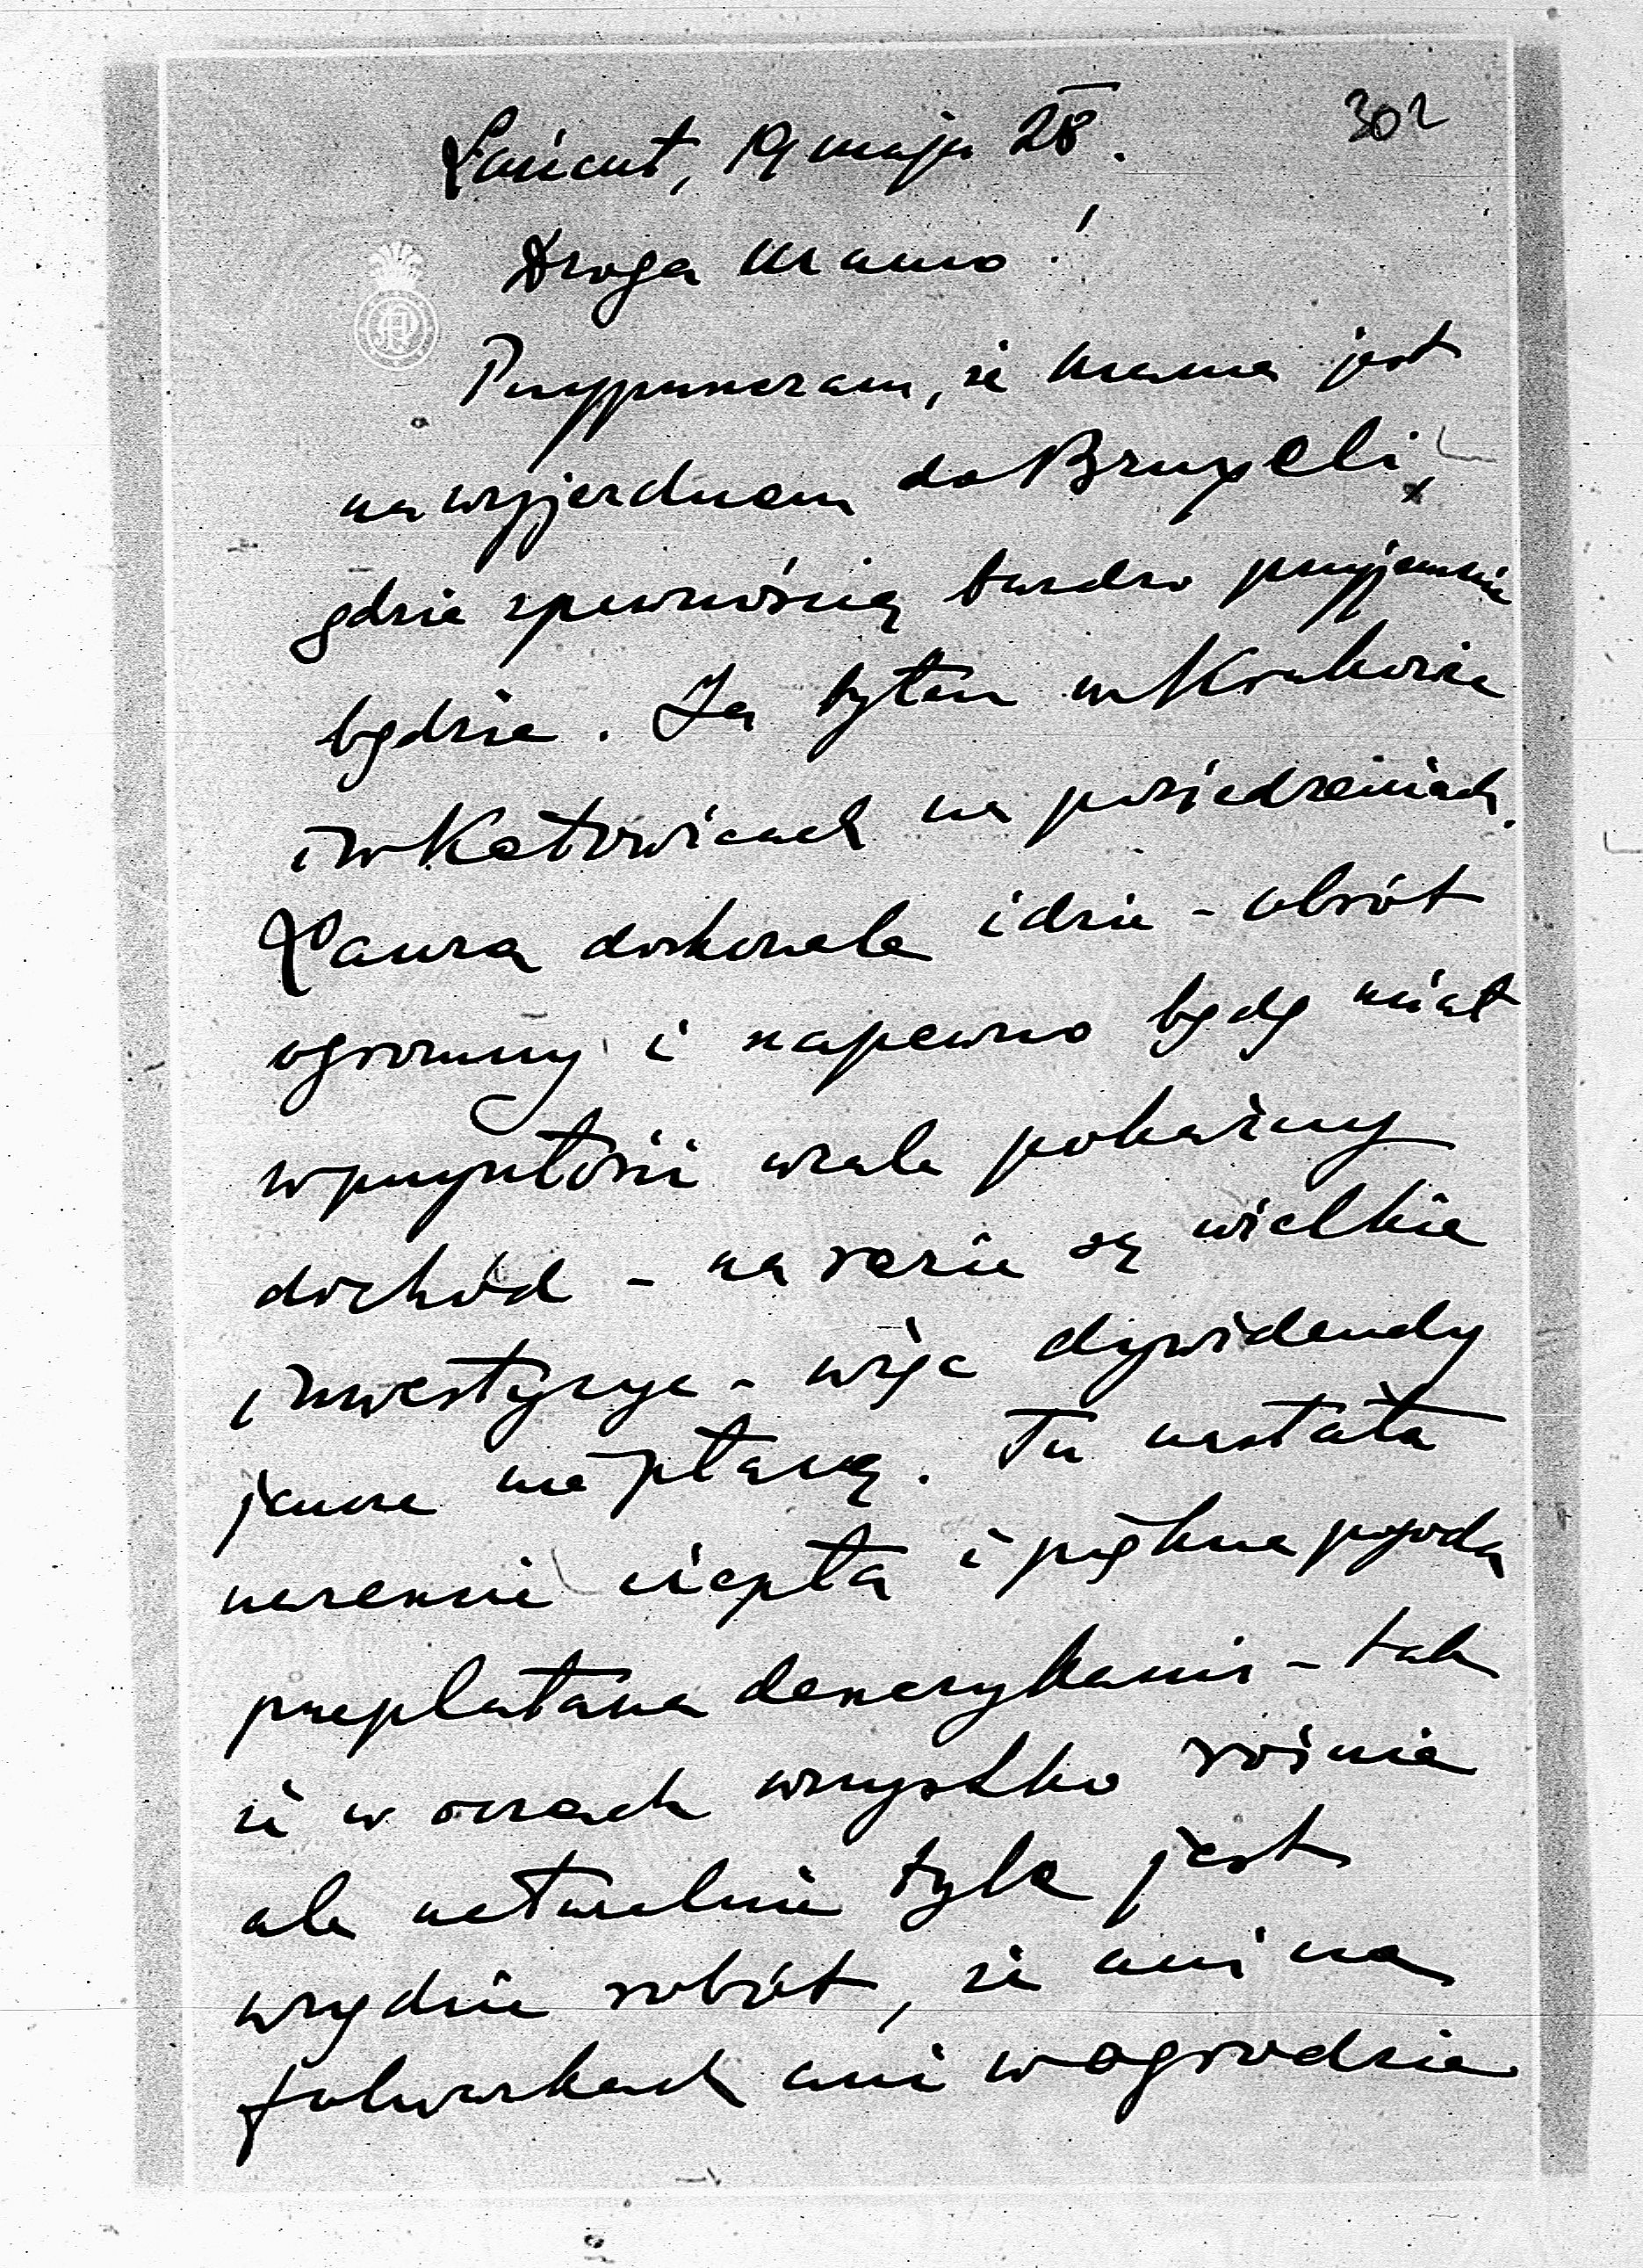 302
Łańcut, 19 maja 28.
Droga Mamo!
Przypuszczam, że Mama jest
na wyjezdnem do Bruxeli,
gdzie zpewnością bardzo przyjemnie
będzie. Ja byłem w Krakowie
i w Katowicach na posiedzeniach.
Laura doskonale idzie - obrót
ogromny i napewno będę miał
w przyszłości wcale pokaźny
dochód - na razie są wielkie
inwestycye - więc dywidendy
jeszcze nie płacą. Tu nastała
nareszcie ciepła i piękna pogoda
przeplatana deszczykami - tak
że w oczach wszystko rośnie
ale naturalnie tyle jest
wszędzie robót, że ani na
folwarkach ani w ogrodzie